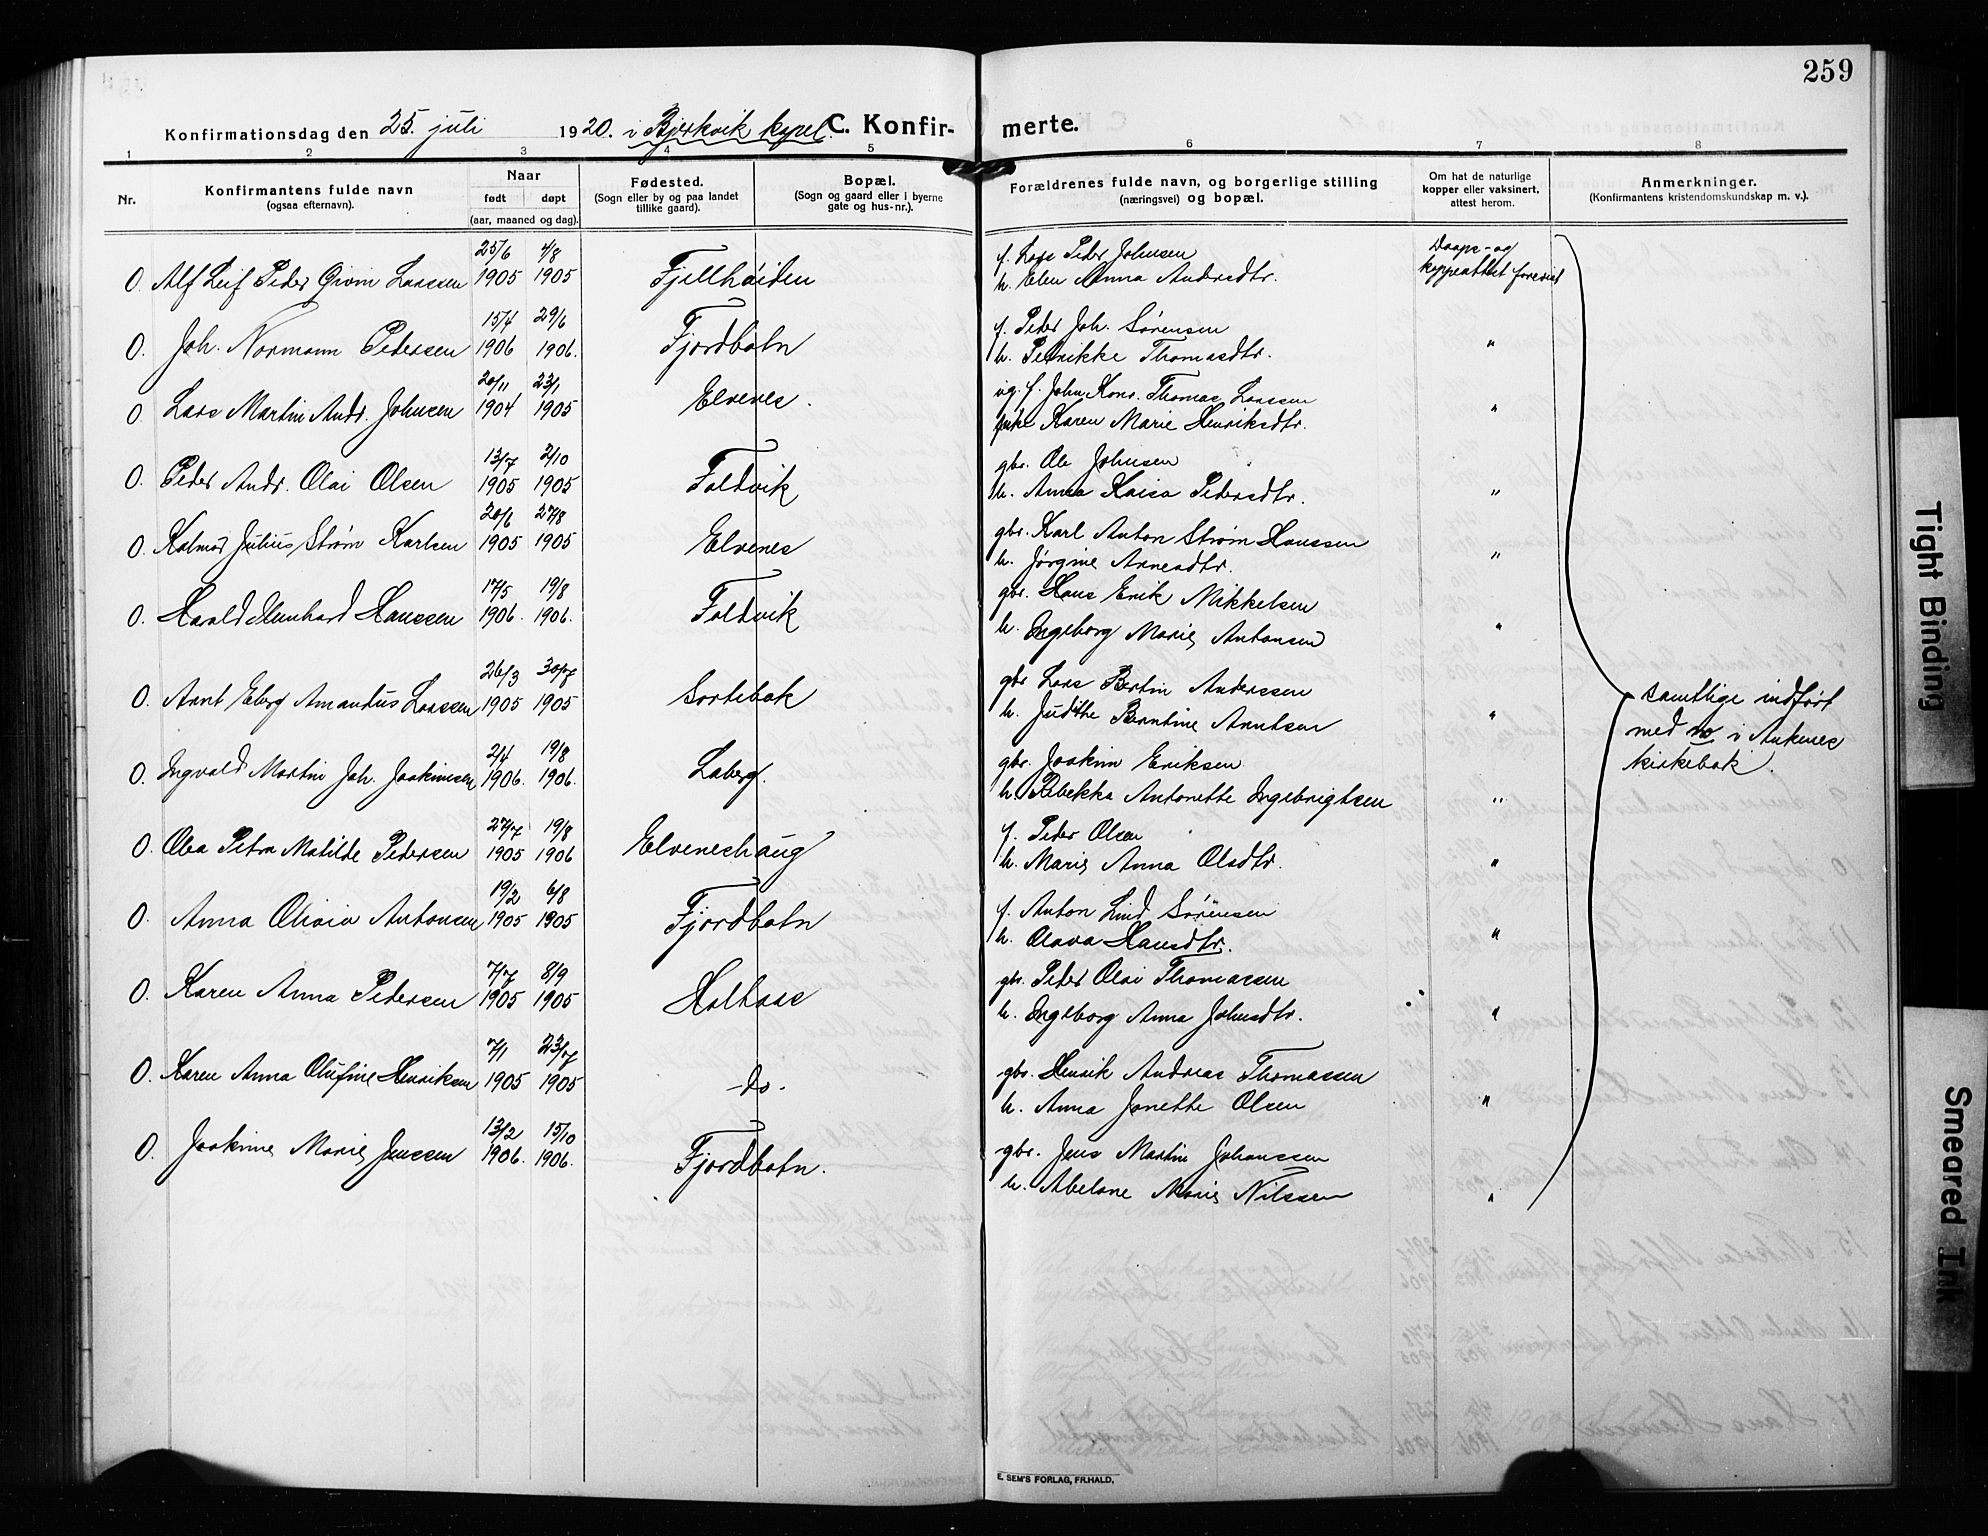 259
Konfirmationsdag den 25. juli 1920. i Bjerkvik kapel. C. Konfir- merte.
1 2 3 4 5 6 7 8
Nr.
Konfirmantens fulde navn
(ogsaa efternavn).
Naar
født døpt
(aar, maaned og dag).
Fødested.
(Sogn eller by og paa landet
tillike gaard).
Bopæl.
(Sogn og gaard eller i byerne
gate og hus-nr.).
Forældrenes fulde navn, og borgerlige stilling
(næringsvei) og bopæl.
Om hat de naturlige
kopper eller vaksinert,
attest herom.
Anmerkninger.
(Konfirmantens kristendomskundskap m. v.).
25/6 4/8 f. Lars Peder Johnsen Daaps- og
0. Alf Leif Peder Larssen 1905 1905 Fjellhøiden h. Elen Anna Andersdtr. koppeattest forevist
15/4 29/6 f. Peder Joh. Sørensen
0. Joh. Normann Pedersen 1906 1906. Fjordbotn h. Petrikke Thomasdtr. "
20/11 23/1 ug. f. John Konr. Thomas Larssen
0. Lars Martin Andr. Johnsen 1904 1905 Elvenes. pike Karen Marie Henriksdtr. "
13/7 2/10 gbr. Ole Johnsen
0. Peder Andr. Olai Olsen 1905 1905 Foldvik h. Anna Kaisa Pedersdtr. "
20/6 27/8 gbr. Karl Anton Strøm Hanssen
0. Kalmar Julius Strøm Karlsen 1905 1905 Elvenes h. Jørgine Arnesdtr. "
17/5 19/8 gbr. Hans Erik Mikkelsen
0. Harald Meinhard Hanssen 1906. 1906. Foldvik h. Ingeborg Marie Antonsen "
26/3 30/7 gbr Lars Bertin Anderssen
0. Arnt Eberg Amandus Larssen 1905 1905 Sortebak h. Judithe Berntine Arntsen "
samtlige indført
med no i Ankenes
kirkebok.
2/4 19/8 gbr. Joakim Eriksen
0. Ingvald Martin Joh. Joakimsen 1906. 1906. Laberg. h. Rebekka Antonette Ingebrigtsen "
27/7 19/8 f. Peder Olsen
0. Olea Petra Matilde Pedersen 1905 1906 Elveneshaug h. Marie Anna Olsdtr. "
19/2 6/8 f. Anton Lind Sørensen
0. Anna Olivia Antonsen 1905 1905 Fjordbotn h. Olava Hansdtr. "
7/7 8/9 gbr. Peder Olai Thomassen
0. Karen Anna Pedersen 1905 1905 Holtaas h. Ingeborg Anna Johnsdtr. "
7/1 23/7 gbr. Henrik Andreas Thomassen
0. Karen Anna Olufine Henriksen 1905 1905 -do- h. Anna Jonette Olsen "
13/2 15/10 gbr. Jens Martin Johanssen
0. Joakime Marie Jenssen 1906. 1906. Fjordbotn. h. Abelone Marie Nilssen "
E. SEM'S FORLAG, FR.HALD.
Tight Binding
Smeared Ink